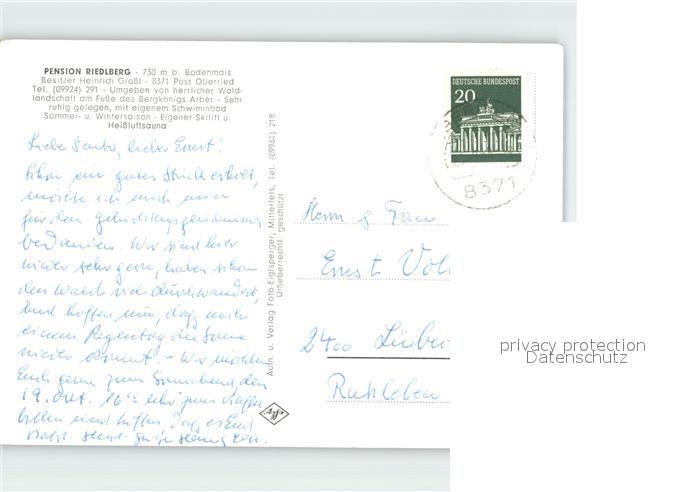 PENSION RIEDLBERG - 730 m b. Bodenmais
Besitzer Heinrich Graßl - 8371 Post Oberried
Tel. (09924) 291 - Umgeben von herrlicher Wald-
landschaft am Fuße des Bergkönigs Arber - Sehr
ruhig gelegen, mit eigenem Schwimmbad
Sommer- u. Wintersaison - Eigener Skilift u.
Heißluftsauna
Liebe lieber Ernst!
Schon ein gutes Stück erholt,
möchte ich mich nun
für den
bedanken. Wir sind hier
wieder sehr gern, haben schon
den Wald viel durchwandert,
und hoffen nun, daß nach
einem Regentag die Sonne
wieder kommt. - Wir möchten
Euch gerne zum Sonnabend, den
19. Okt. 16 Uhr zum Kaffee
bitten und hoffen, daß es Euch
paßt.
Aufn. u. Verlag Foto-Eiglsperger, Mitterfels, Tel. (09961) 218
Urheberrechtl. geschützt
DEUTSCHE BUNDESPOST
20
8371
Herrn & Frau
Ernst
2400
Ratzleben
privacy protection
Datenschutz